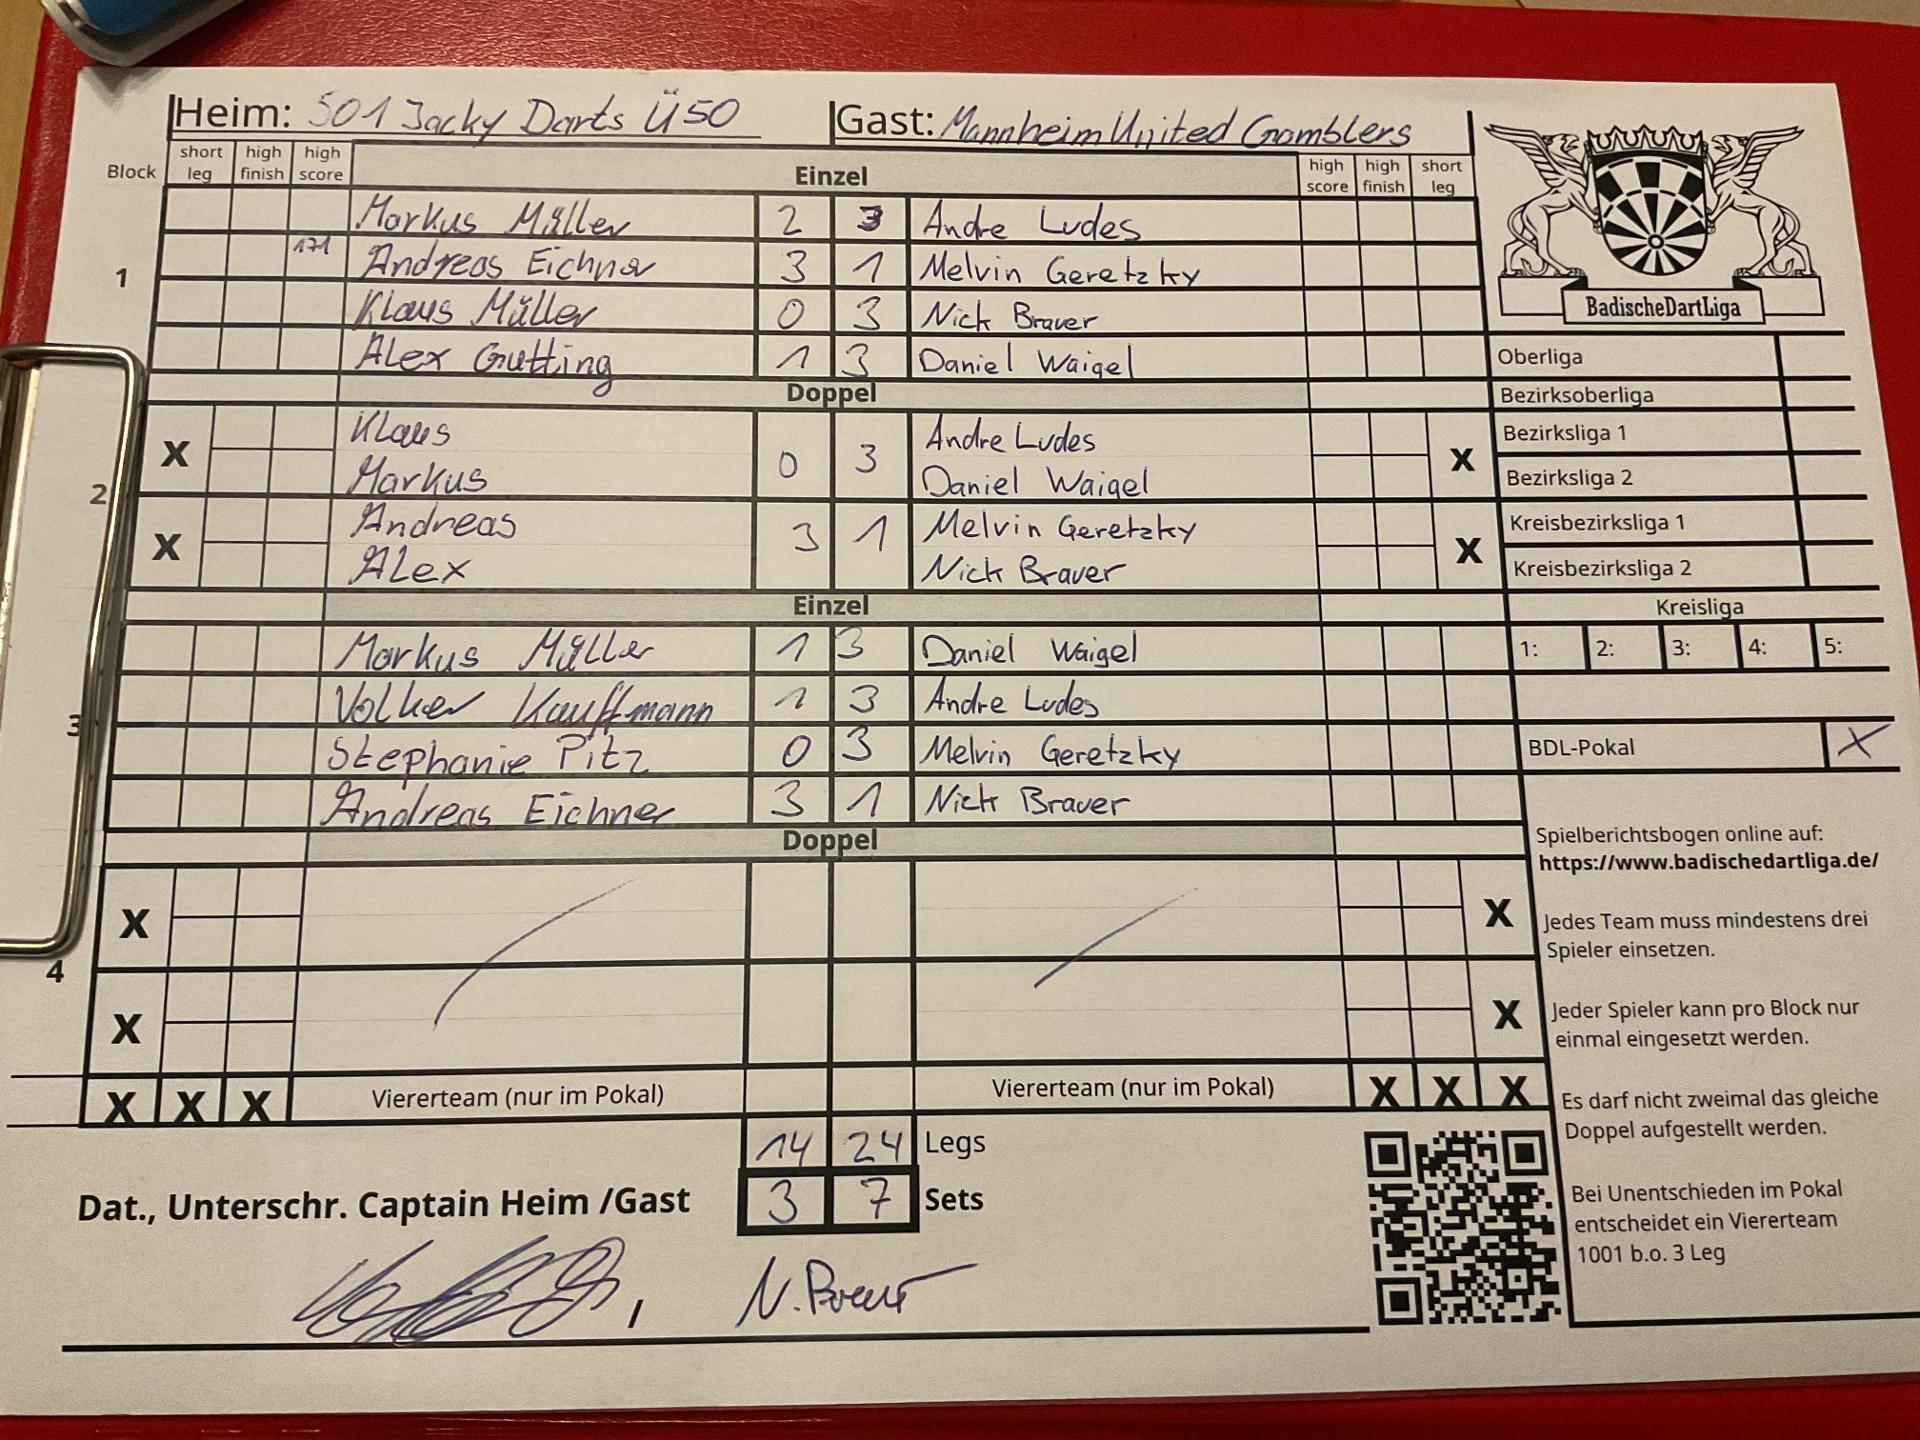 Heim: 501 Jacky Darts Ü50 Gast: Mannheim United Gamblers
Block short leg high finish high score Einzel high score high finish short leg
Markus Müller 2 3 Andre Ludes
1 171 Andreas Eichner 3 1 Melvin Geretzky
Klaus Müller 0 3 Nick Brauer
Alex Gutting 1 3 Daniel Waigel
Doppel
X Klaus 0 3 Andre Ludes X
Markus Daniel Waigel
2
X Andreas 3 1 Melvin Geretzky X
Alex Nick Brauer
Einzel
Markus Müller 1 3 Daniel Waigel
Volker Kauffmann 1 3 Andre Ludes
3
Stephanie Pitz 0 3 Melvin Geretzky
Andreas Eichner 3 1 Nick Brauer
Doppel
X X
4
X X
X X X Viererteam (nur im Pokal) Viererteam (nur im Pokal) X X X
14 24 Legs
Dat., Unterschr. Captain Heim /Gast 3 7 Sets
/ N. Brauer
BadischeDartLiga
Oberliga
Bezirksoberliga
Bezirksliga 1
Bezirksliga 2
Kreisbezirksliga 1
Kreisbezirksliga 2
Kreisliga
1: 2: 3: 4: 5:
BDL-Pokal X
Spielberichtsbogen online auf:
https://www.badischedartliga.de/
Jedes Team muss mindestens drei
Spieler einsetzen.
Jeder Spieler kann pro Block nur
einmal eingesetzt werden.
Es darf nicht zweimal das gleiche
Doppel aufgestellt werden.
Bei Unentschieden im Pokal
entscheidet ein Viererteam
1001 b.o. 3 Leg